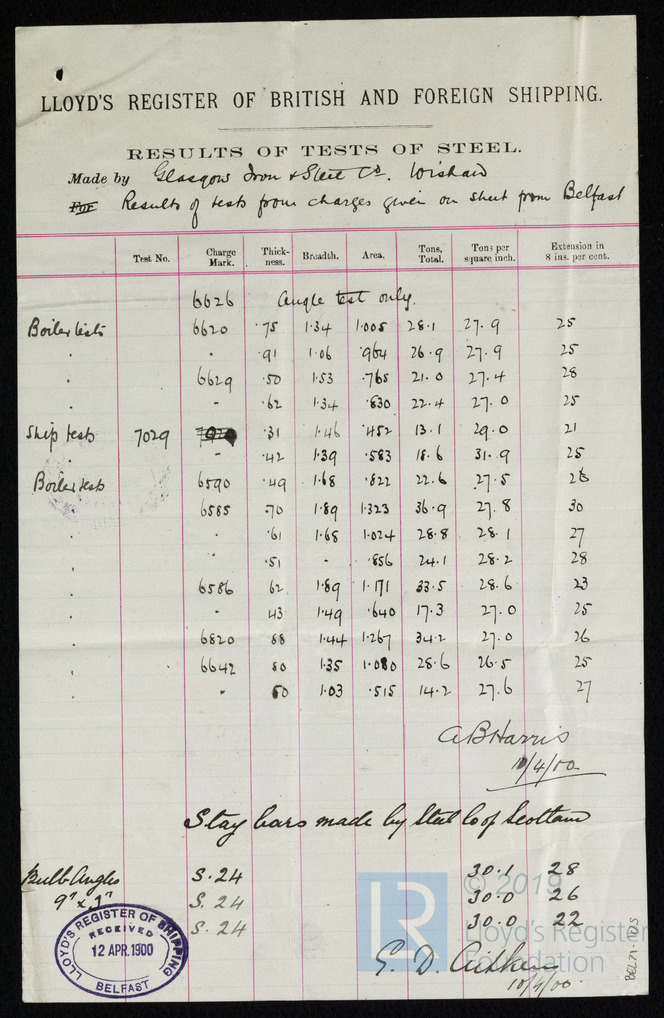 LLOYD'S REGISTER OF BRITISH AND FOREIGN SHIPPING.
RESULTS OF TESTS OF STEEL.
Made by Glasgow Iron & Steel Co. Wishaw
For Results of tests from charges given on sheet from Belfast
Test No. Charge Mark. Thick-ness. Breadth. Area. Tons, Total. Tons per square inch. Extension in 8 ins. per cent.
6626 Angle test only.
Boiler tests 6620 .75 1.34 1.005 28.1 27.9 25
" " .91 1.06 .964 26.9 27.9 25
" 6629 .50 1.53 .765 21.0 27.4 28
" " .62 1.34 .830 22.4 27.0 25
Ship tests 7029 .31 1.46 .452 13.1 29.0 21
" " .42 1.39 .583 18.6 31.9 25
Boiler tests 6590 .49 1.68 .822 22.6 27.5 26
" 6585 .70 1.89 1.323 36.9 27.8 30
" " .61 1.68 1.024 28.8 28.1 27
" " .51 " .856 24.1 28.2 28
" 6586 62 1.89 1.171 33.5 28.6 23
" " 43 1.49 .640 17.3 27.0 25
" 6820 88 1.44 1.267 34.2 27.0 26
" 6642 80 1.35 1.080 28.6 26.5 25
" " 50 1.03 .515 14.2 27.6 27
A B Harris
11/4/00
Stay bars made by Steel Co of Scotland
Bulb Angles S.24 30.1 28
9" x 3" S.24 30.0 26
S.24 30.0 22
LLOYD'S REGISTER OF SHIPPING
RECEIVED
12 APR. 1900
BELFAST
G. D. Aitken
10/4/00
LR
© 2019
Lloyd's Register
Foundation